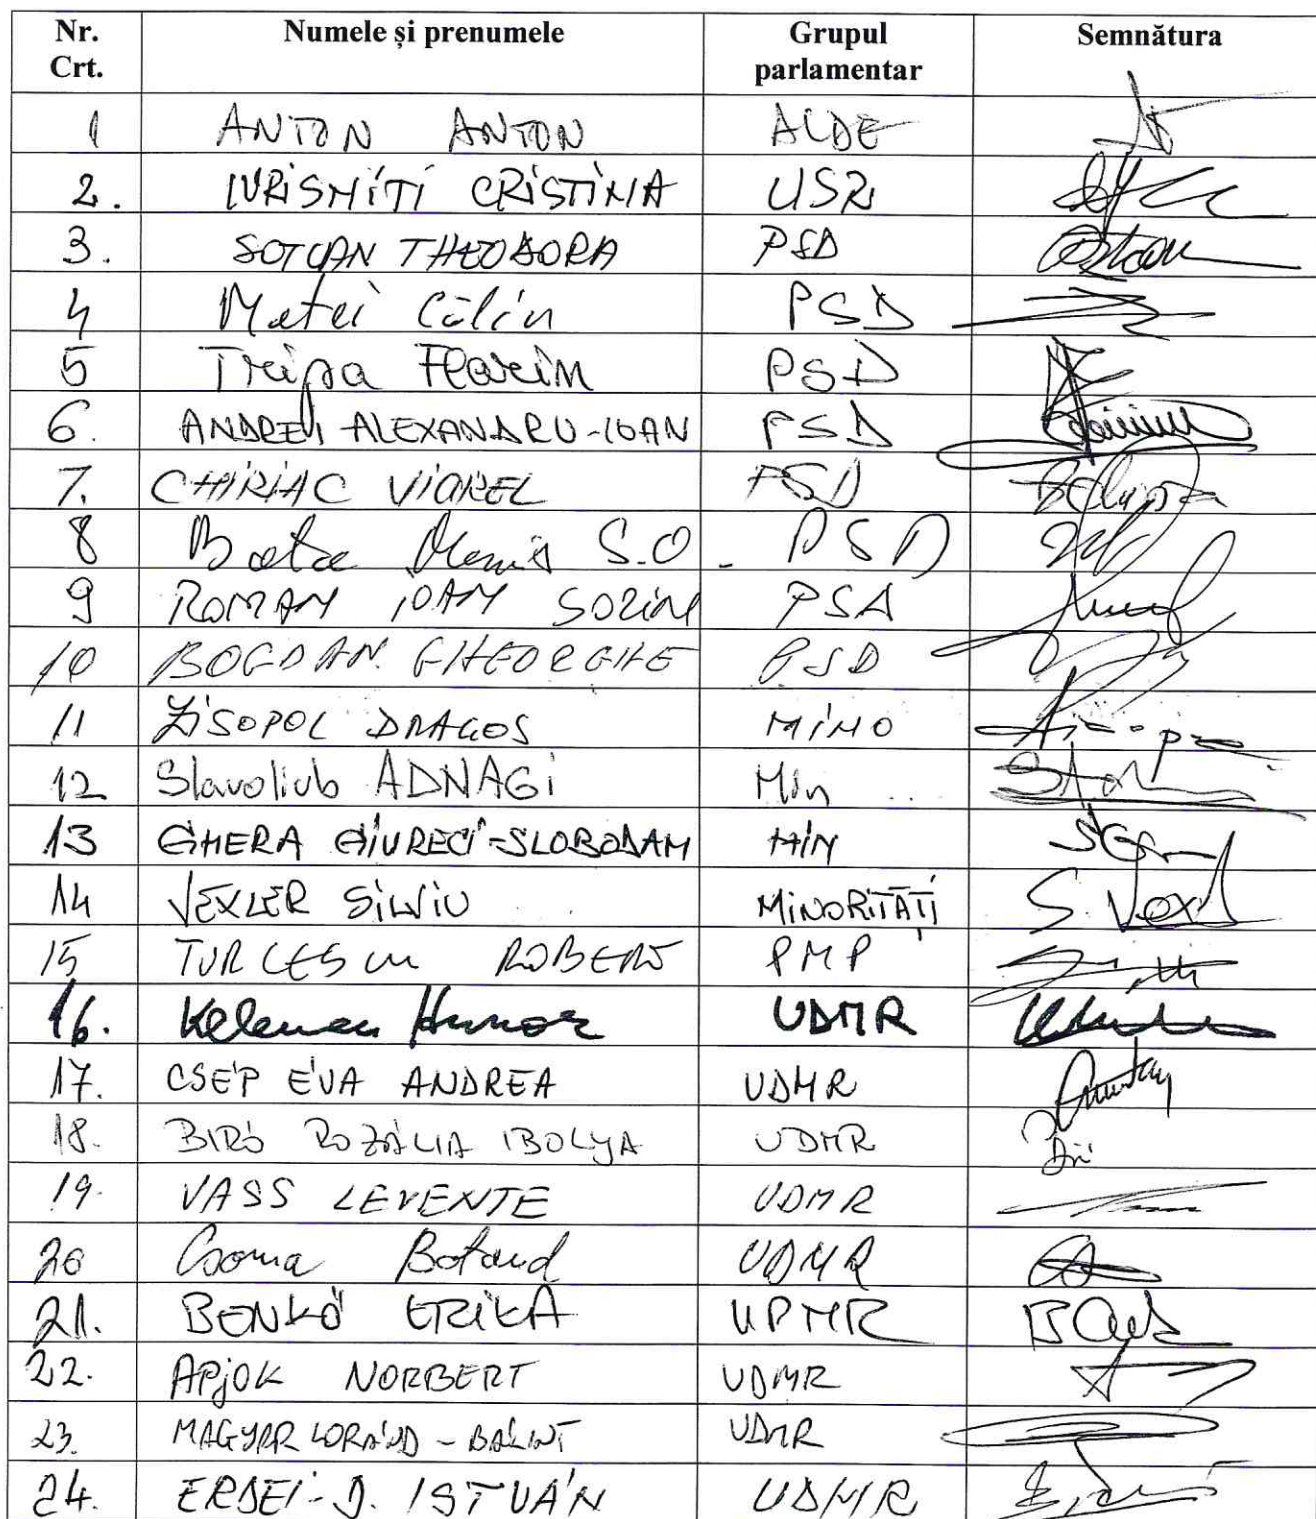 Nr. Crt. Numele și prenumele Grupul parlamentar Semnătura
1 ANTON ANTON ALDE
2. IURISNITI CRISTINA USR
3. SOTCAN THEODORA PSD
4 Matei Călin PSD
5 Tripa Florin PSD
6. ANDREI ALEXANDRU-IOAN PSD
7. CHIRIAC VIOREL PSD
8 S.O. PSD
9 ROMAN IOAN SORIN PSD
10 BOGDAN GHEORGHE PSD
11 ZISOPOL DRAGOS MINO
12 Slavoliub ADNAGI Min
13 GHERA GIURECI-SLOBODAN MIN
14 VEXLER SILVIU MINORITĂȚI S Vexl
15 TURCESCU ROBERT PMP
16. Kelemen Hunor UDMR
17. CSÉP ÉVA ANDREA UDMR
18. BIRÓ ROZÁLIA IBOLYA UDMR
19. VASS LEVENTE UDMR
20 Csoma Botond UDMR
21. BENKŐ ERIKA UDMR
22. APJOK NORBERT UDMR
23. MAGYAR LORÁND - BÁLINT UDMR
24. ERDEI-D. ISTVÁN UDMR